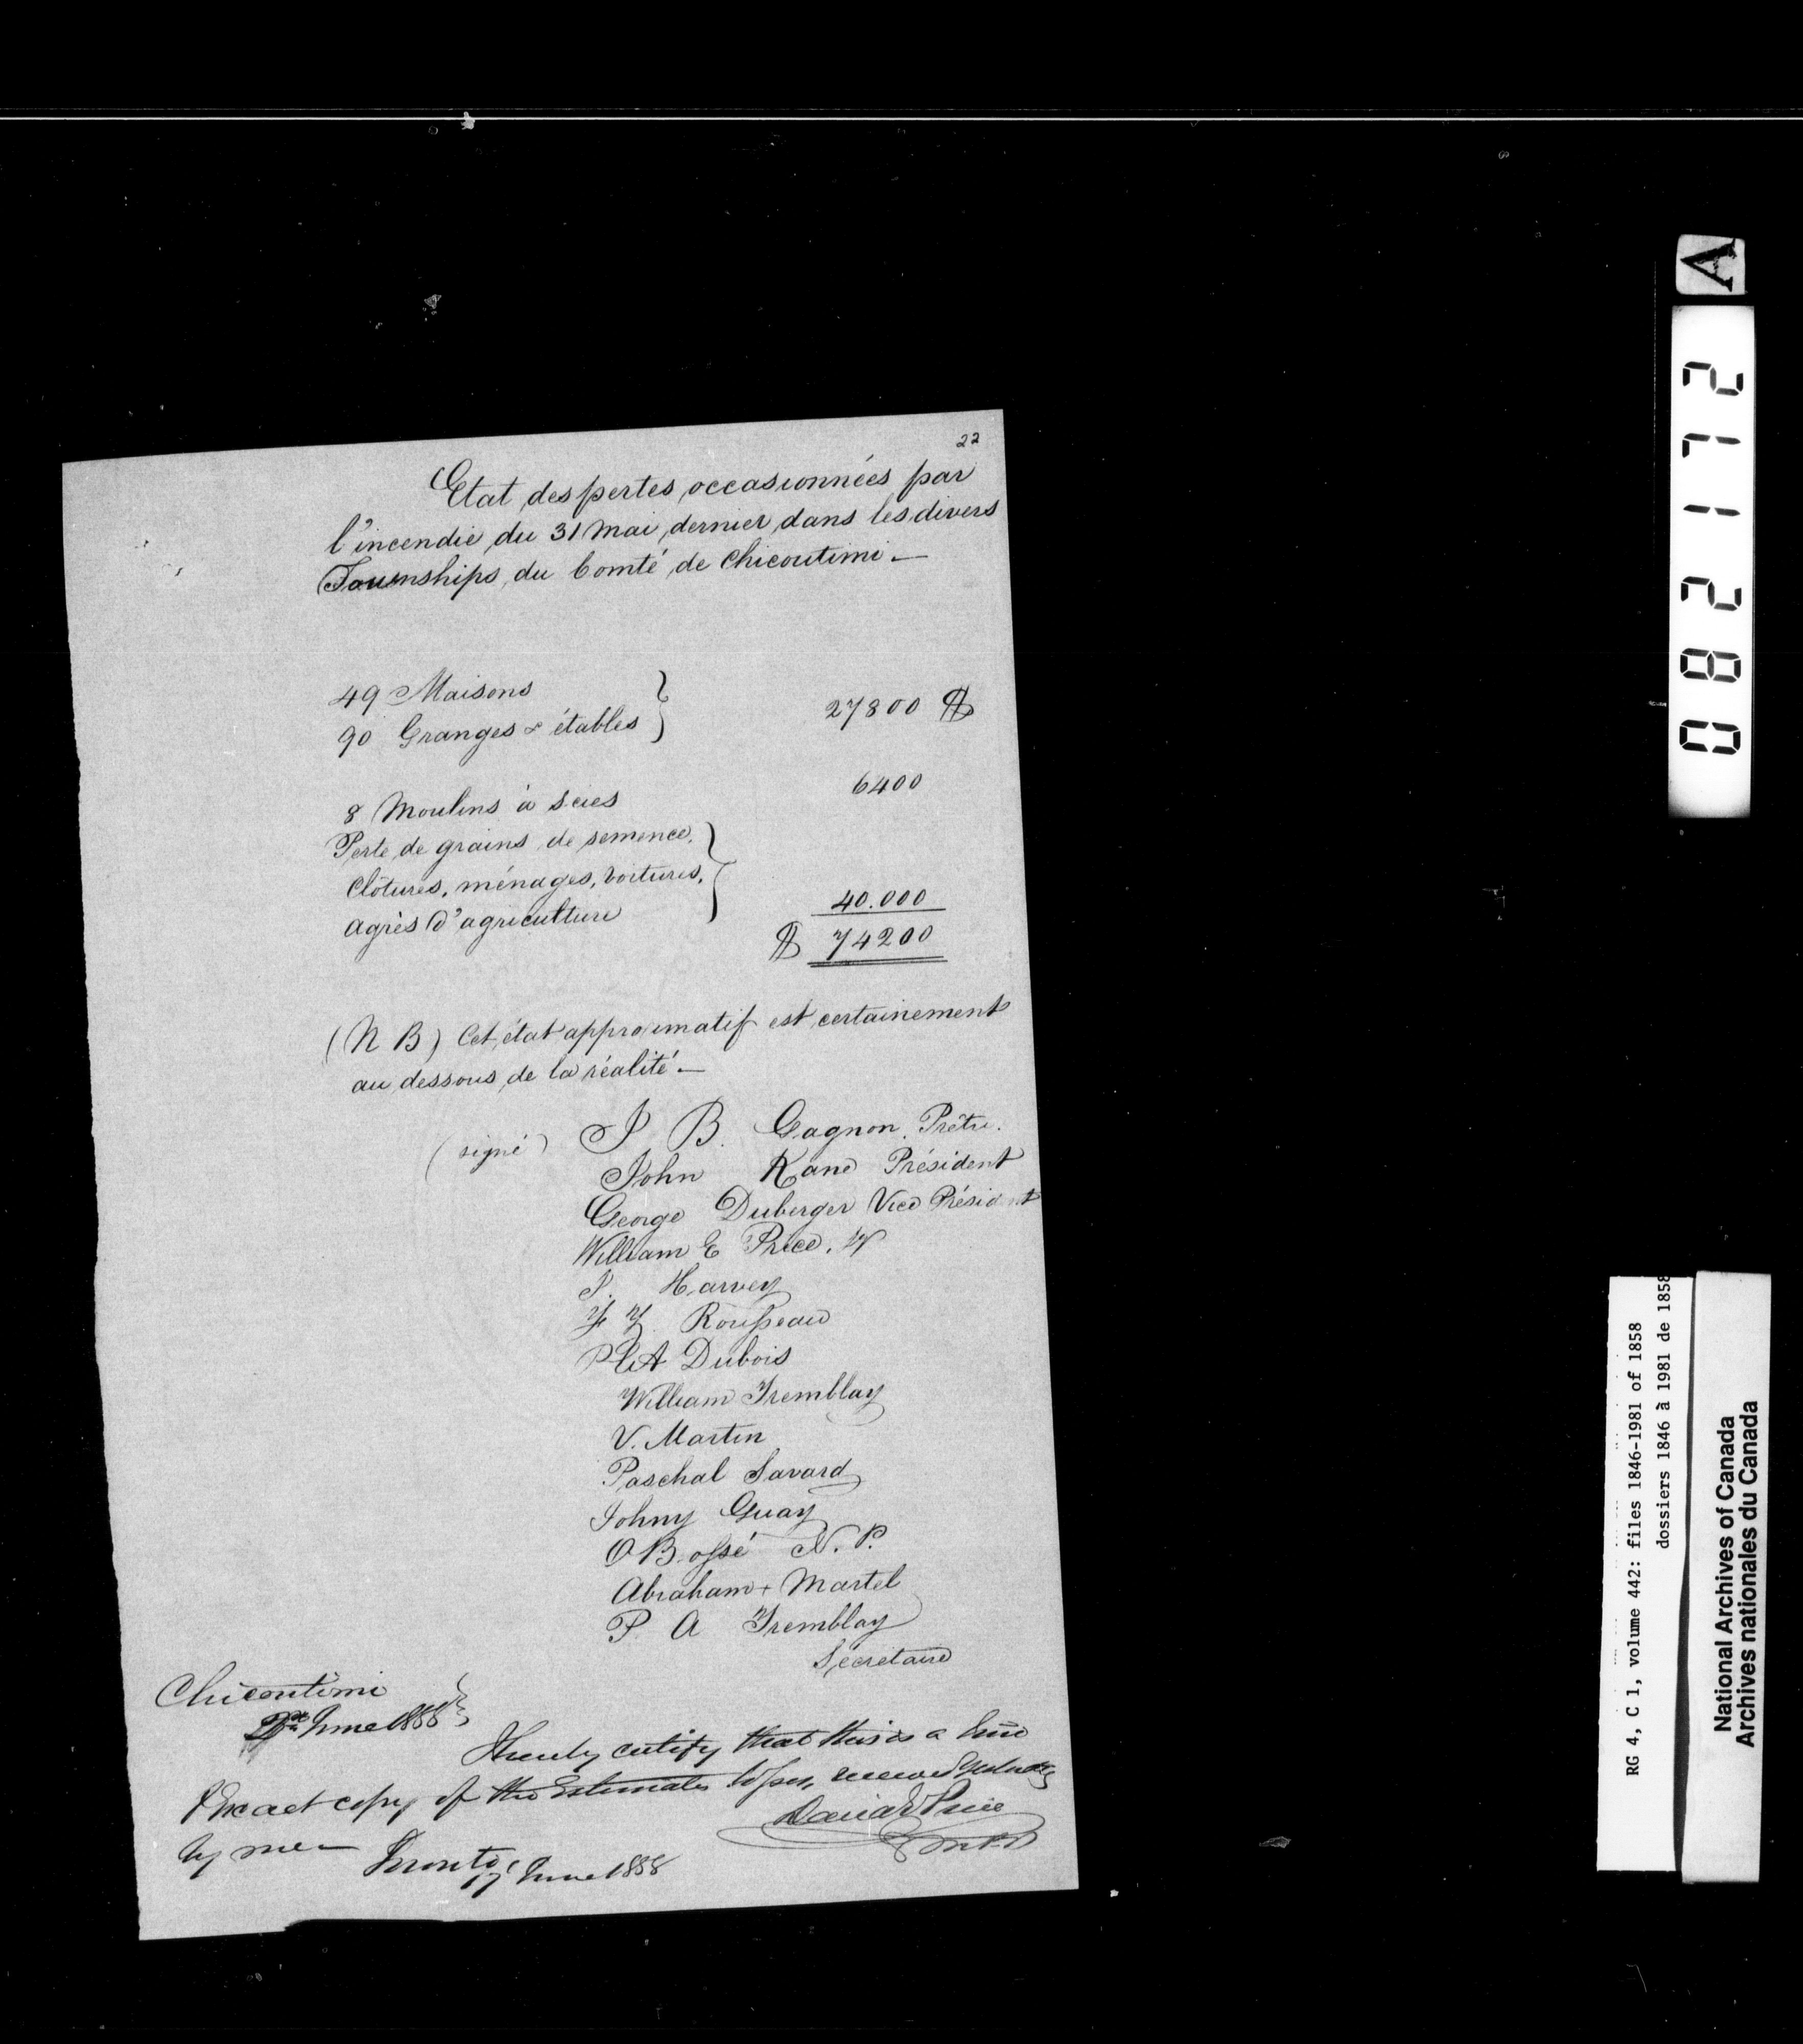 22
Etat des pertes occasionnées par
l'incendie du 31 Mai dernier dans les divers
Townships du Comté de Chicoutimi —
49 Maisons
90 Granges & étables } 27800 $
8 Moulins à scies 6400
Perte de grains de semence,
Clôtures, ménages, voitures,
agrès d'agriculture } 40.000
$ 74200
(N B) Cet état approximatif est certainement
au dessous de la réalité. —
(signé) J. B. Gagnon. Prêtre.
John Kane Président
George Duberger Vice Président
William E Price.
J. Harvey
Rousseau
Dubois
William Tremblay
V. Martin
Paschal Savard
Johny Guay
O Bossé N. P.
Abraham + Martel
P. A Tremblay
Secrétaire
Chicoutimi
June 1858 }
I hereby certify that this is a true
& Exact copy of the Estimate losses, received yesterday
by me —
David E Price
M.P.P.
Toronto,
17 June 1858
A
082172
RG 4, C 1, volume 442: files 1846-1981 of 1858
dossiers 1846 à 1981 de 1858
National Archives of Canada
Archives nationales du Canada